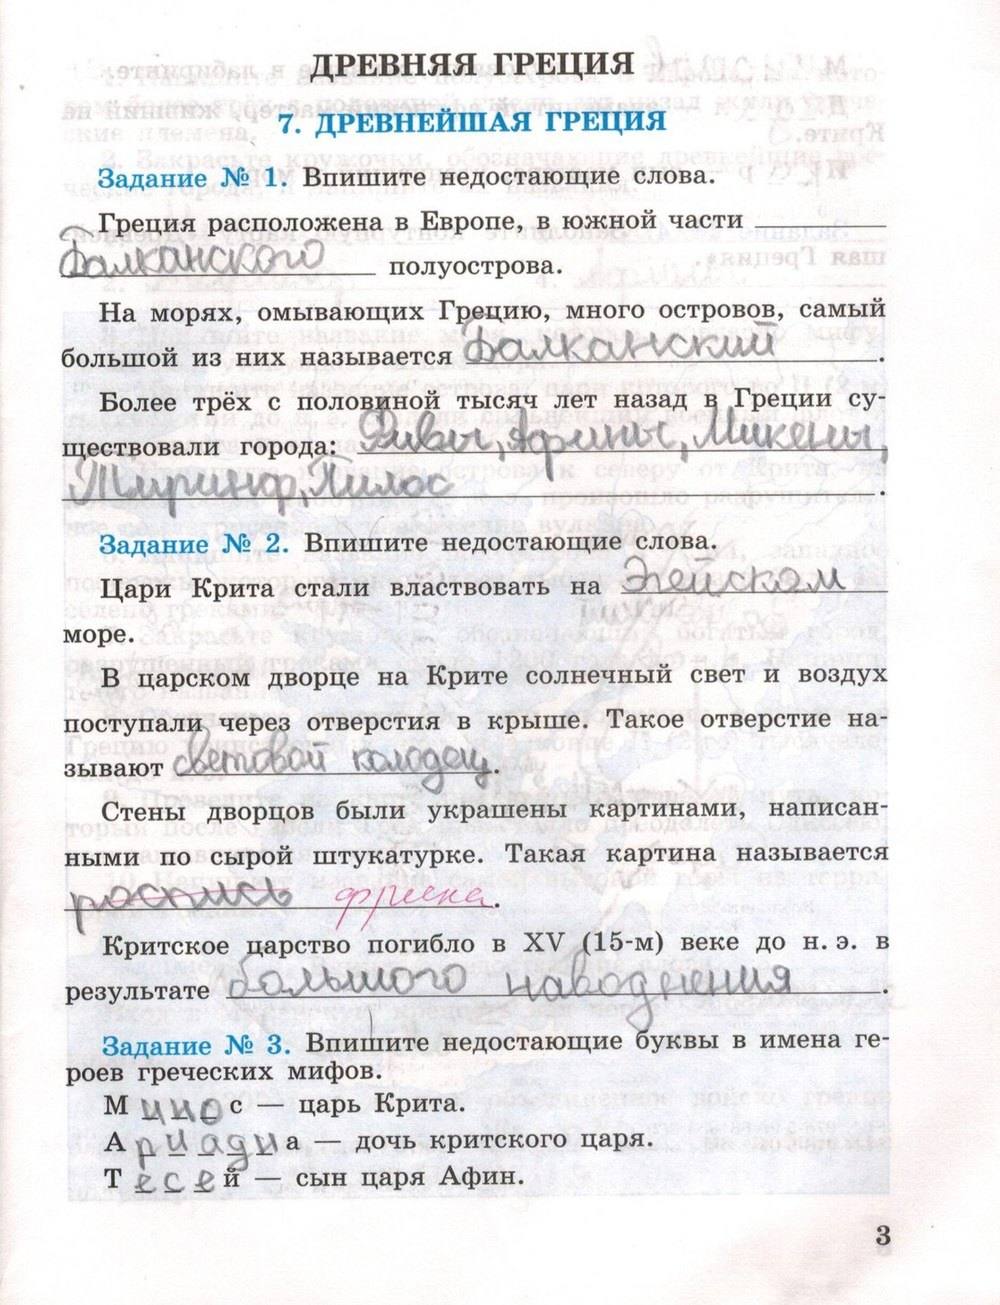 ДРЕВНЯЯ ГРЕЦИЯ
7. ДРЕВНЕЙШАЯ ГРЕЦИЯ
Задание № 1. Впишите недостающие слова.
Греция расположена в Европе, в южной части
Балканского полуострова.
На морях, омывающих Грецию, много островов, самый
большой из них называется Балканский.
Более трёх с половиной тысяч лет назад в Греции су-
ществовали города: Фивы, Афины, Микены,
Тиринф, Пилос.
Задание № 2. Впишите недостающие слова.
Цари Крита стали властвовать на Эгейском
море.
В царском дворце на Крите солнечный свет и воздух
поступали через отверстия в крыше. Такое отверстие на-
зывают световой колодец.
Стены дворцов были украшены картинами, написан-
ными по сырой штукатурке. Такая картина называется
роспись фреска.
Критское царство погибло в XV (15-м) веке до н. э. в
результате большого наводнения.
Задание № 3. Впишите недостающие буквы в имена ге-
роев греческих мифов.
Минос — царь Крита.
Ариадна — дочь критского царя.
Тесей — сын царя Афин.
3